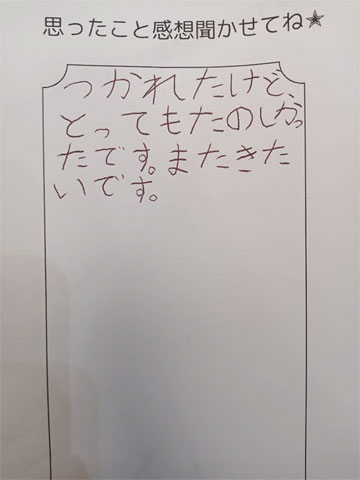 思ったこと感想聞かせてね★
つかれたけど、
とってもたのしかっ
たです。またきた
いです。